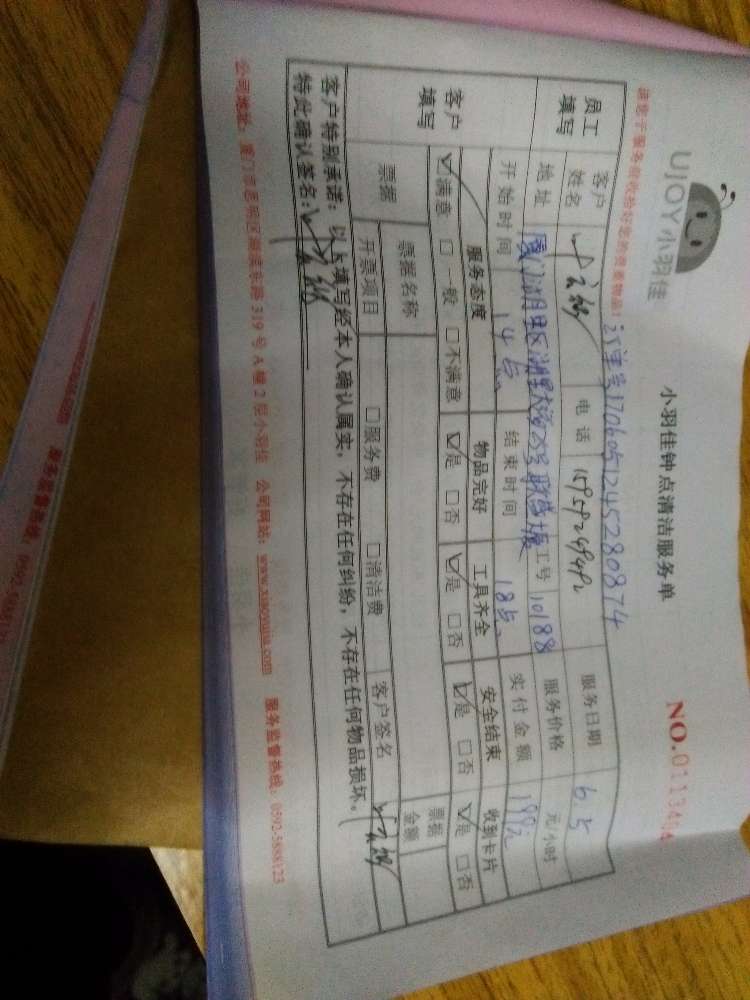 UJOY小羽佳
小羽佳钟点清洁服务单
NO.0113494
请您于服务前收检好您的贵重物品!
订单号1706051245280874
员工填写
客户姓名
电话 15959249492
服务日期 6.5
地址 厦门湖里区湖里大道
工号 10188
服务价格 元/小时
开始时间 14点
结束时间 18点
实付金额
客户填写
服务态度 物品完好 工具齐全 安全结束 收到卡片
☑满意 □一般 □不满意 ☑是 □否 ☑是 □否 ☑是 □否 ☑是 □否
票据
票据名称
票据金额
开票项目 □服务费 □清洁费 客户签名
客户特别承诺：以上填写经本人确认属实，不存在任何纠纷，不存在任何物品损坏。
特此确认签名：
公司地址：厦门市思明区 319号A幢2层小羽佳 公司网站： 服务监督热线：0592-5888123